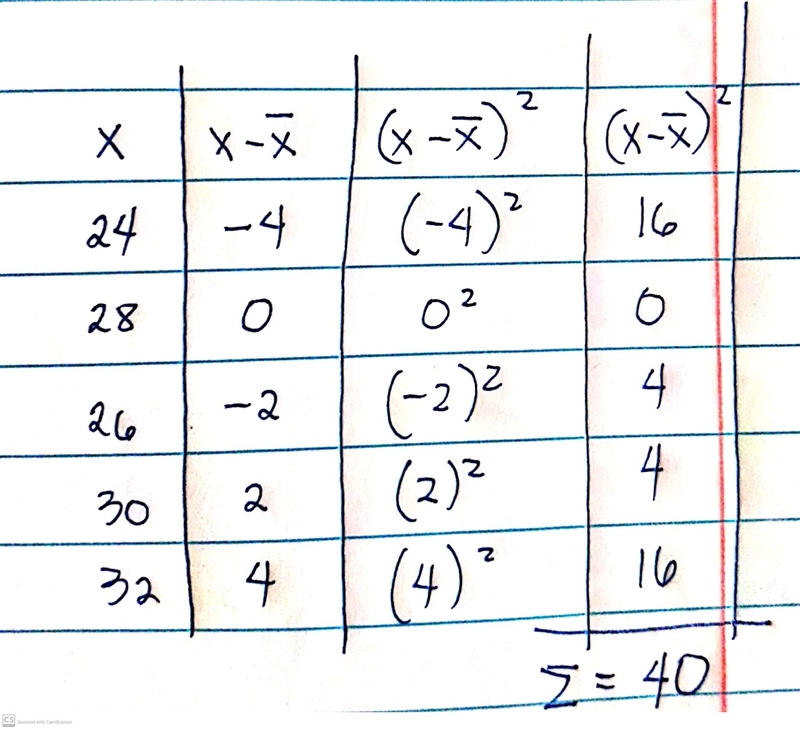 x x-x̄ (x-x̄)² (x-x̄)²
24 -4 (-4)² 16
28 0 0² 0
26 -2 (-2)² 4
30 2 (2)² 4
32 4 (4)² 16
Σ = 40
CS Scanned with CamScanner